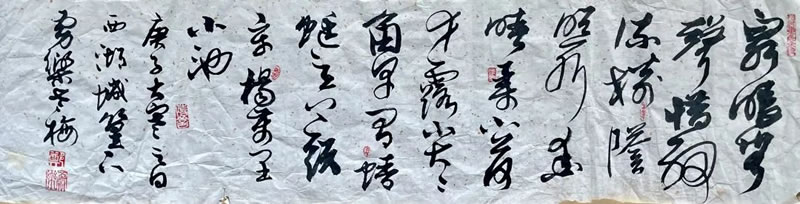 泉眼無
聲惜細
流樹陰
照水愛
晴柔小荷
才露尖々
角早有蜻
蜓立上頭
宋楊萬里
小池
庚子大寒日
西湖城
樂老梅